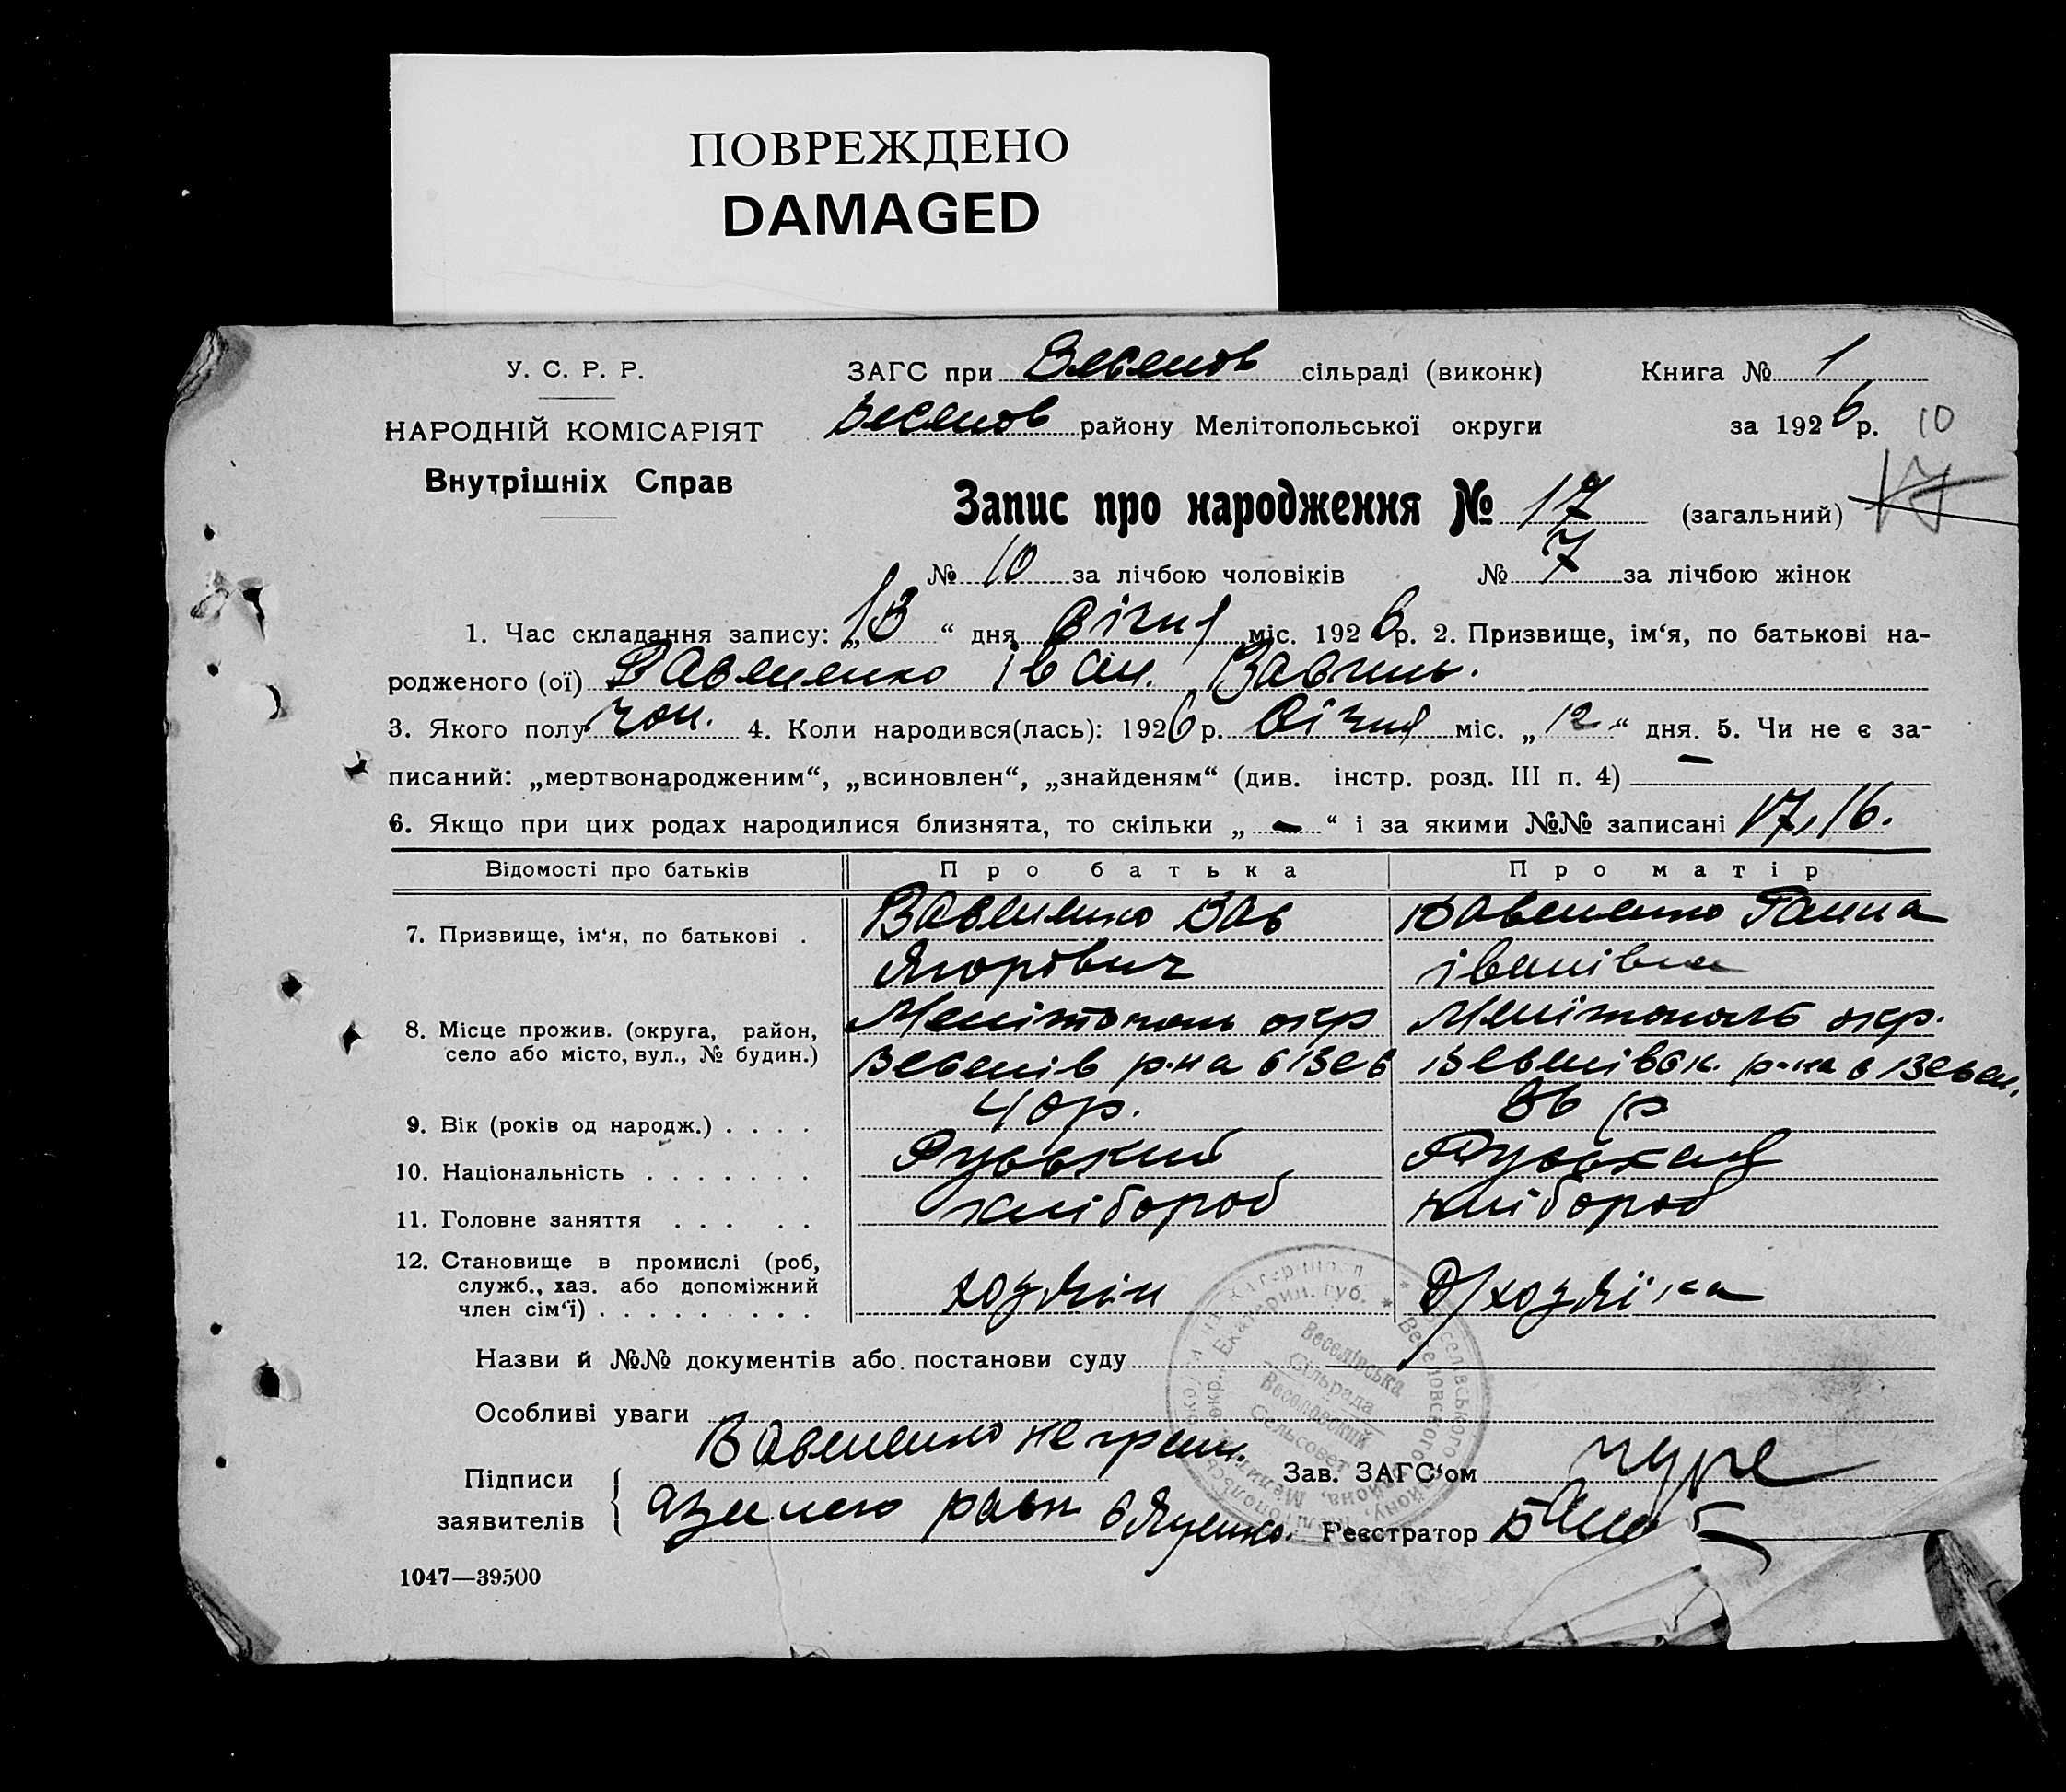 ПОВРЕЖДЕНО
DAMAGED
У. С. Р. Р.
НАРОДНІЙ КОМІСАРІЯТ
Внутрішніх Справ
ЗАГС при Веселов сільраді (виконк)
Веселов району Мелітопольської округи
Книга № 1
за 1926 р. 10
Запис про народження № 17 (загальний) 17
№ 10 за лічбою чоловіків № 7 за лічбою жінок
1. Час складання запису: „13“ дня Січня міс. 1926 р. 2. Призвище, ім‘я, по батькові на-
родженого (ої) Іван.
3. Якого полу чол. 4. Коли народився(лась): 1926 р. Січня міс. „12“ дня. 5. Чи не є за-
писаний: „мертвонародженим“, „всиновлен“, „знайденям“ (див. інстр. розд. III п. 4) —
6. Якщо при цих родах народилися близнята, то скільки „ — “ і за якими №№ записані 17, 16.
Відомості про батьків Про батька Про матір
7. Призвище, ім‘я, по батькові . Ганна
Ягорович іванівна
8. Місце прожив. (округа, район,
село або місто, вул., № будин.)
Мелітополь окр Мелітополь окр.
Веселів р-на с Вес Веселівск. р-на с Весел.
9. Вік (років од народж.) . . . . 40 р. 36 р
10. Національність . . . . . . . Руський Руськая
11. Головне заняття . . . . . хлібороб хлібороб
12. Становище в промислі (роб,
служб., хаз. або допоміжний
член сім‘ї) . . . . . . . . хозяїн д/хозяїка
Назви й №№ документів або постанови суду
Особливі уваги
Підписи
заявителів
не грам.
Зав. ЗАГС‘ом
Реєстратор
Веселівська
Сільрада
Веселовский
Сельсовет
1047—39500